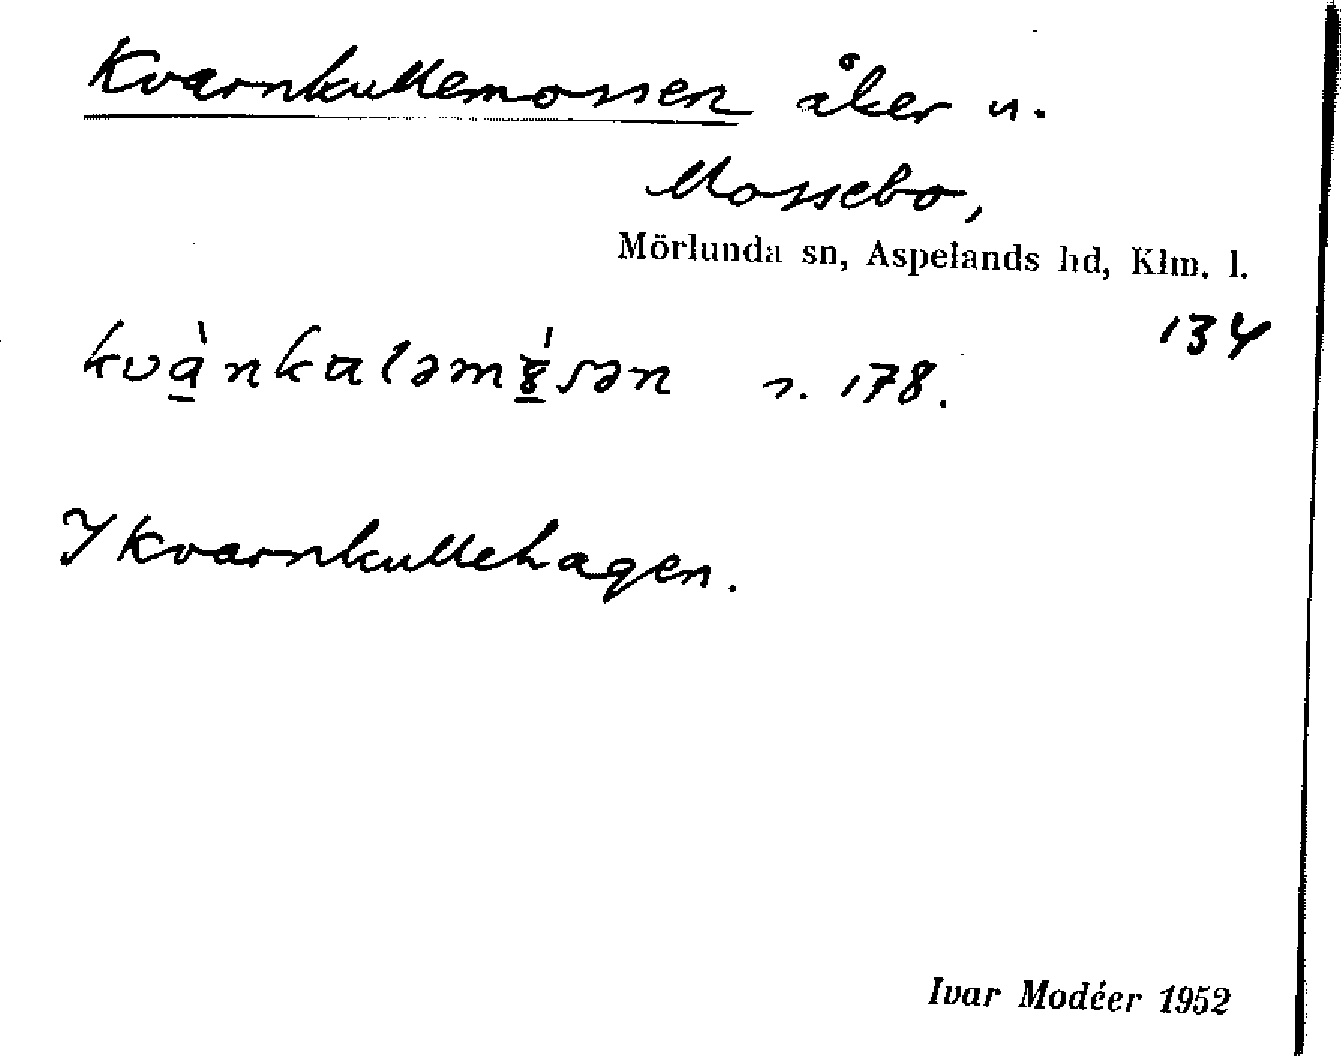 Kvarnkullemossen åker u.
Mossebo,
Mörlunda sn, Aspelands hd, Klm. l.
134
s. 178.
I Kvarnkullehagen.
Ivar Modéer 1952